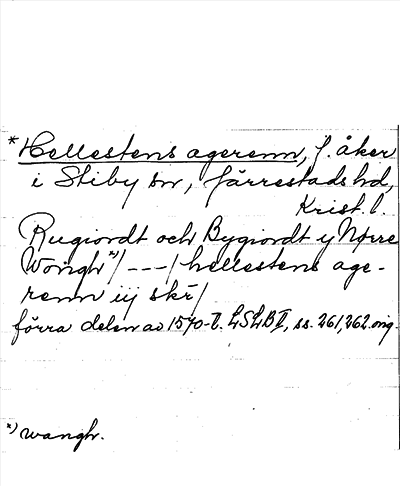 *Hellestens agerenn, f. åker
i Stiby sn, Järrestads hd,
Krist. l.
Rugiordt och Bygiordt y Nørre
Wongh*)/ --- / hellestens age-
renn iij skr/
förra delen av 1570-t. LSLB II, ss. 261, 262 orig.
*) wangh.